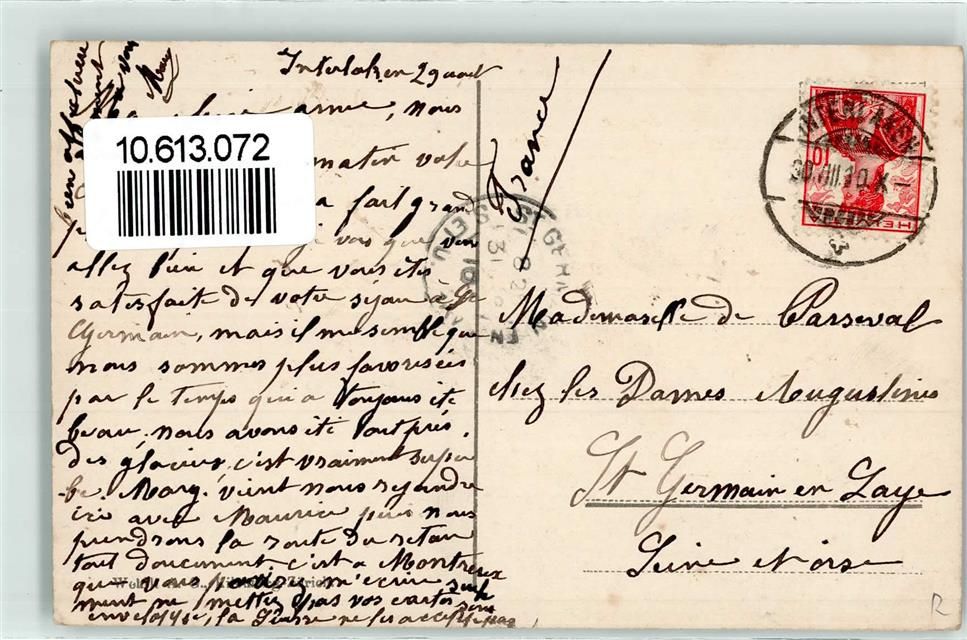 Interlaken 29 aout
chère amie, nous
10.613.072
matin votre
a fait grand
vois que vous
allez bien et que vous êtes
satisfaite de votre séjour à St
Germain, mais il me semble que
nous sommes plus favorisées
par le temps qui a toujours été
beau, nous avons été tout près
des glaciers, c'est vraiment super
be. Marg. vient nous rejoindre
ici avec Maurice puis nous
prendrons la route du retour
tout doucement, c'est a Montreux
que vous m'écrire seule
ment ne mettez pas vos cartes sous
enveloppe, la Suisse ne les accepte pas
bien affectueuse
France
INTERLAKEN
30.VIII.10.X-
3
10
HELVETIA
ST GERMAIN EN
31 8
SEINE
Mademoiselle de Parseval
chez les Dames Augustines
St Germain en Laye
Seine et Oise
Zürich
R